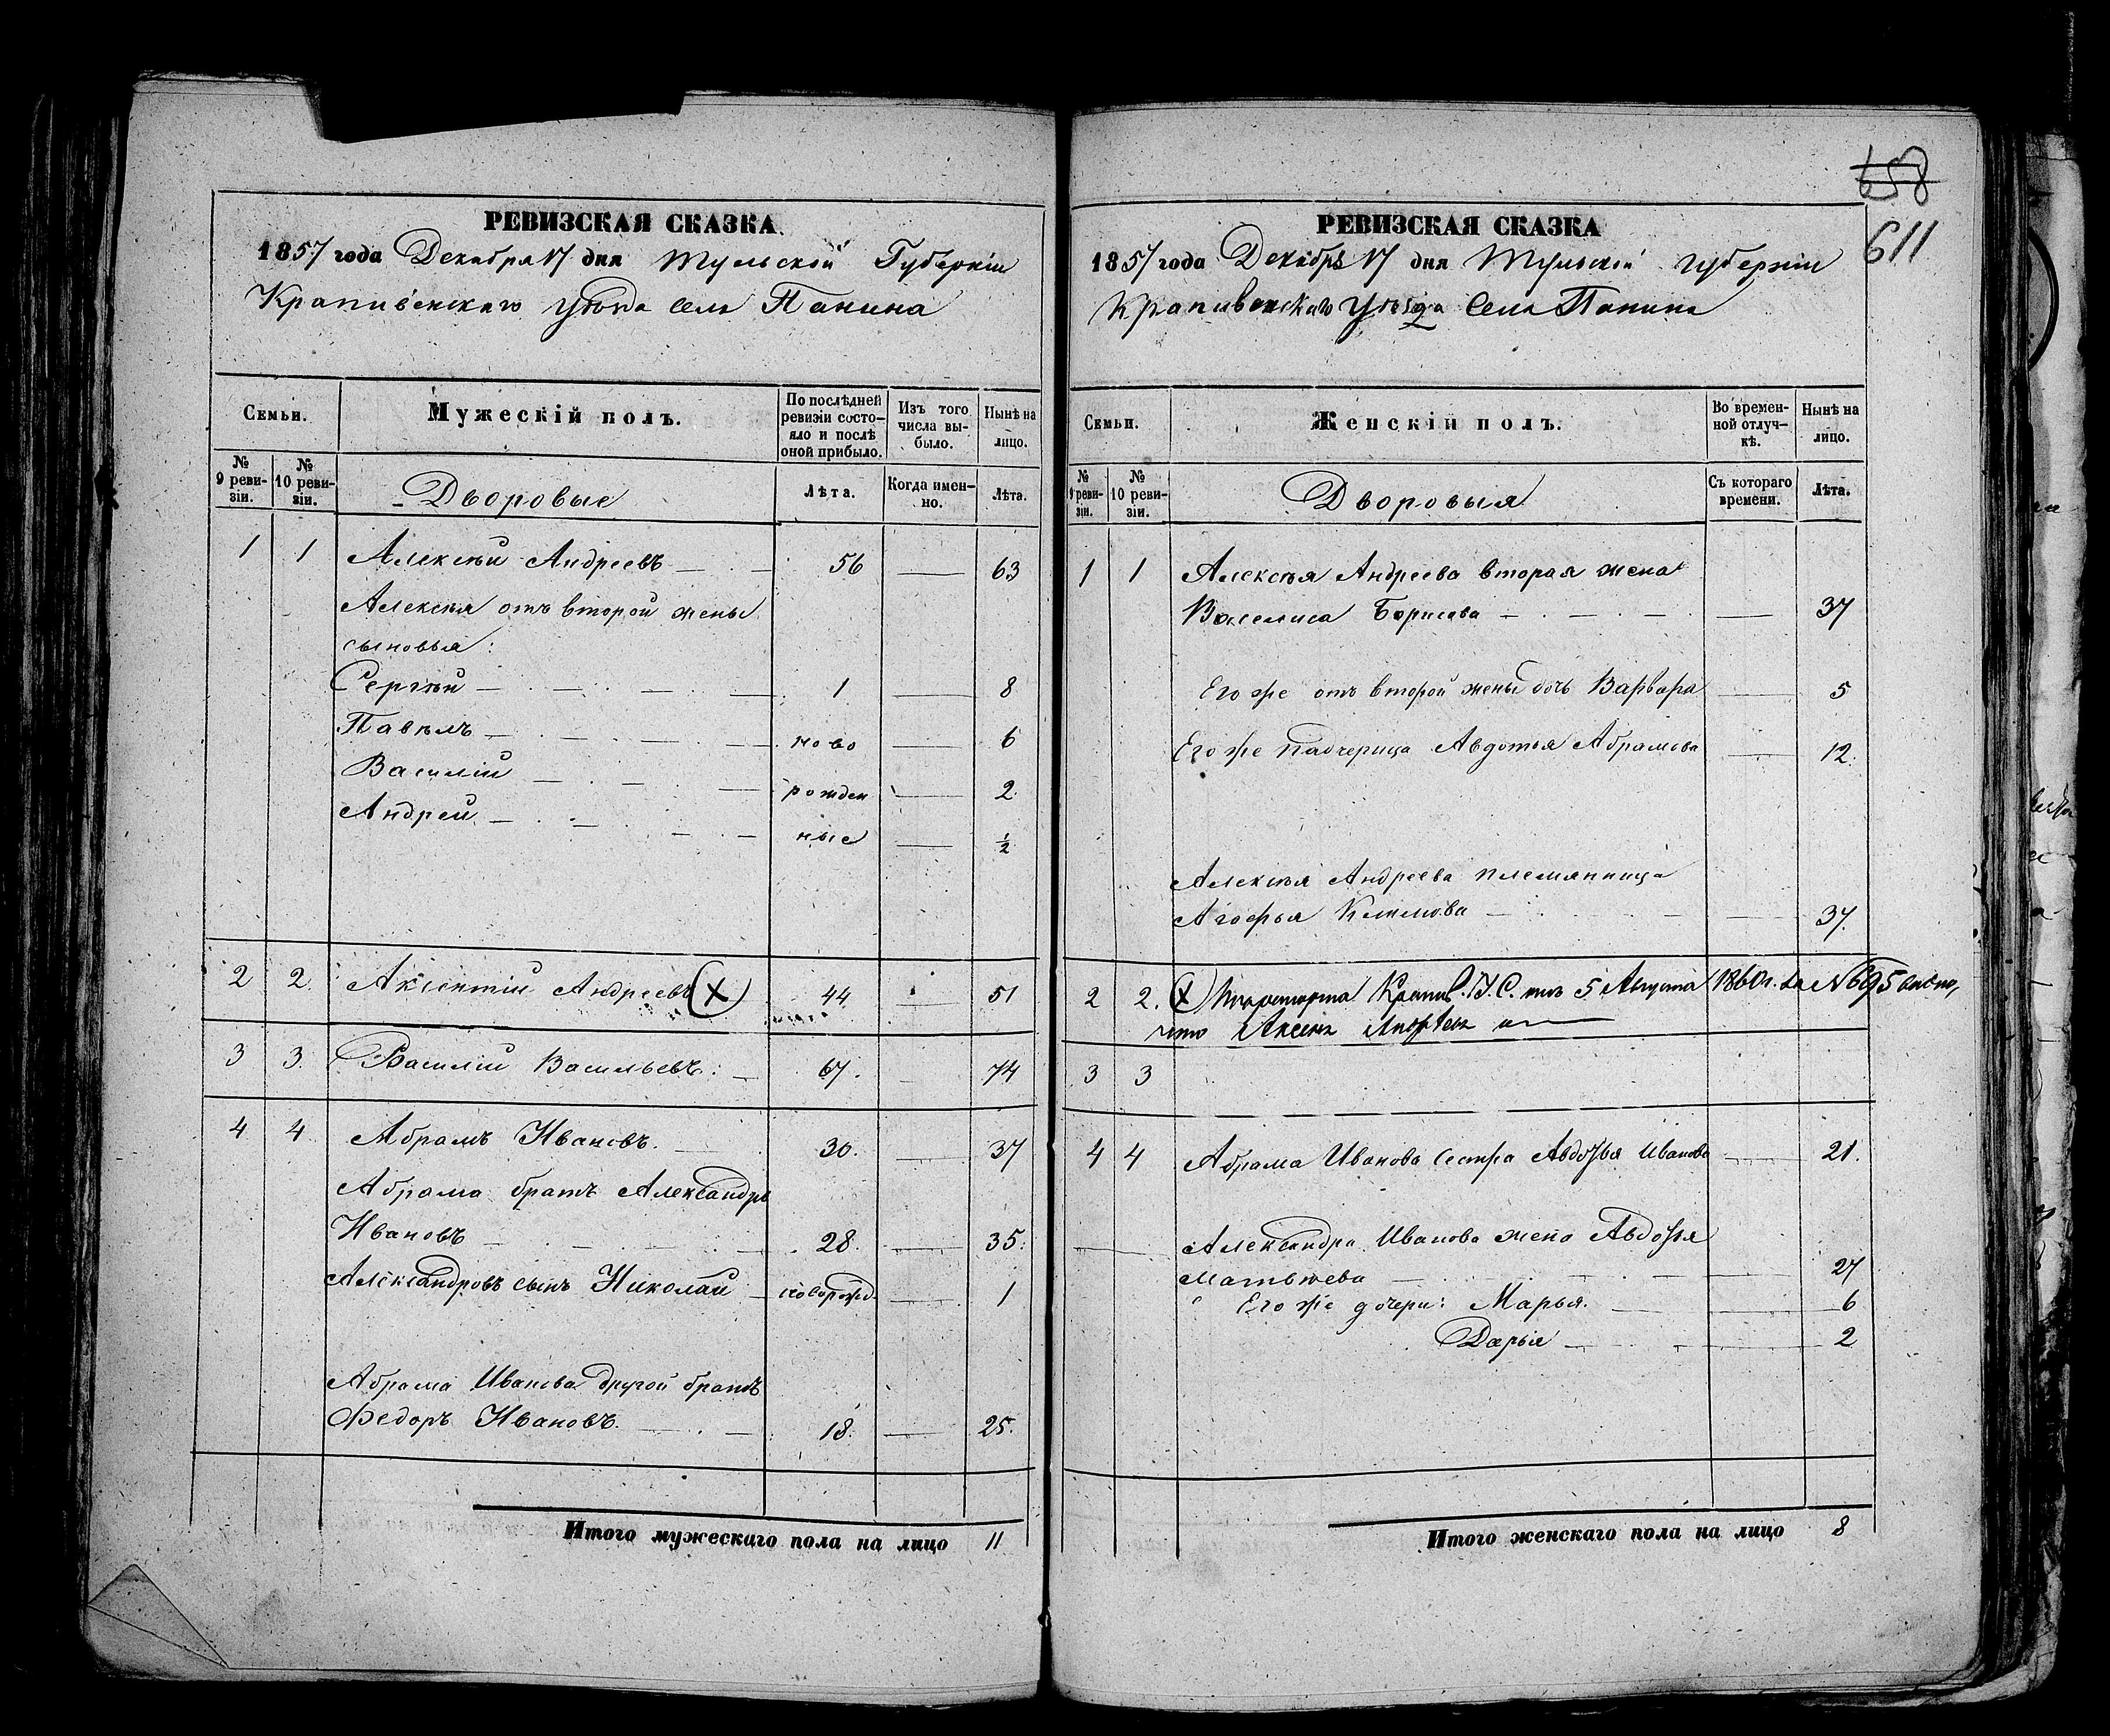 РЕВИЗСКАЯ СКАЗКА
1857 года Декабря 17 дня Тульской Губерніи
Крапивенскаго уѣзда села Панина
Семьи.
Мужескій полъ.
По послѣдней ревизіи состояло и послѣ оной прибыло.
Изъ того числа выбыло.
Нынѣ на лицо.
№ 9 ревизіи.
№ 10 ревизіи.
Дворовые
Лѣта.
Когда именно.
Лѣта.
1 1 Алексѣй Андреевъ 56 63
Алексѣя отъ второй жены
сыновья:
Сергѣй 1 8
Павелъ ново 6
Василій рожден 2
Андрей ные 1/2
2 2 Аксентій Андреевъ (X) 44 51
3 3 Василій Васильевъ 67. 74
4 4 Абрамъ Ивановъ. 30. 37
Абрама братъ Александръ
Ивановъ 28. 35.
Александровъ сынъ Николай новорожд. 1
Абрама Иванова другой братъ
Федоръ Ивановъ. 18. 25.
Итого мужескаго пола на лицо 11
658
611
РЕВИЗСКАЯ СКАЗКА
1857 года Декабря 17 дня Тульской губерніи
Крапивенскаго Уѣзда Села Панина
Семьи.
Женскій полъ.
Во временной отлучкѣ.
Нынѣ на лицо.
№ 9 ревизіи.
№ 10 ревизіи.
Дворовыя
Съ котораго времени.
Лѣта.
1 1 Алексѣя Андреева вторая жена
Василиса Борисова 37
Его же отъ второй жены дочь Варвара 5
Его же падчерица Авдотья Абрамова 12.
Алексѣя Андреева племянница
Агофья Климова 37.
2 2. (X) 5 Августа 1860г. за № 695
что
3 3
4 4 Абрама Иванова сестра Авдотья Иванова 21.
Александра Иванова жена Авдотья
Матвѣева 27
Его же дочери: Марья. 6
Дарья 2
Итого женскаго пола на лицо 8